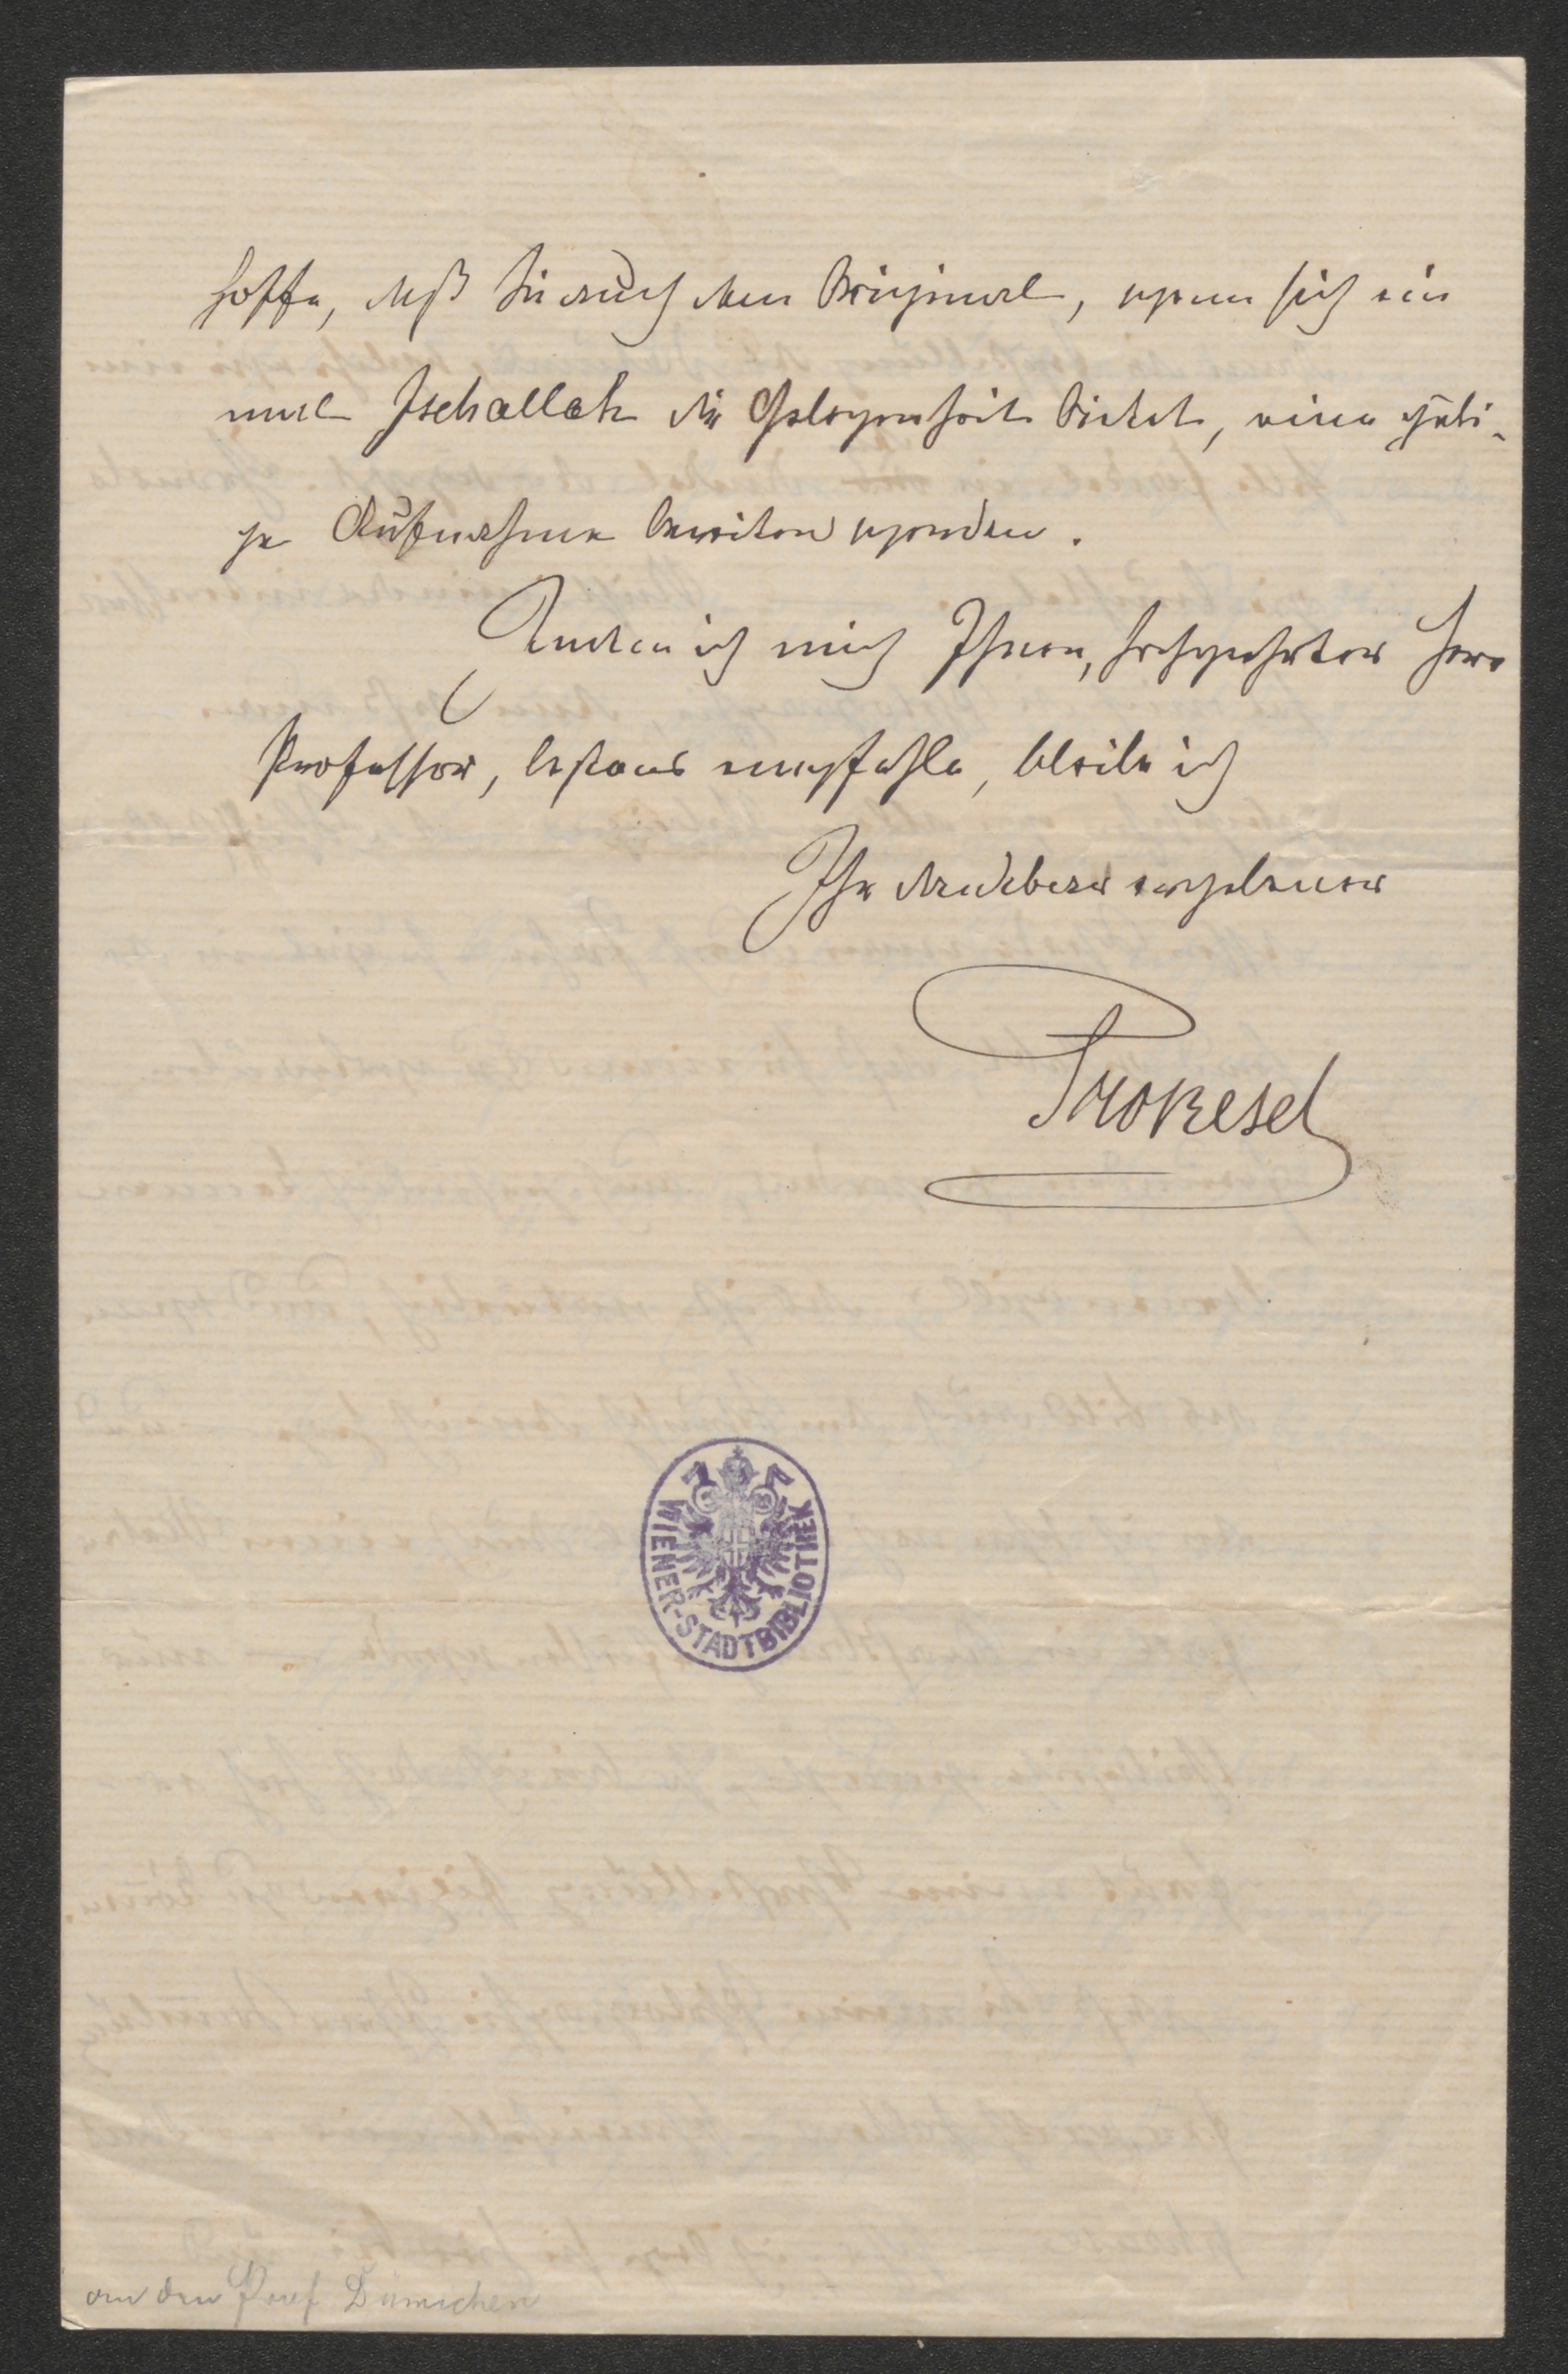 hoffe, daß Sie auch dem Original, wenn sich ein
mal Ischallah die Gelegenheit bietet, eine güti-
ge Aufnahme bereiten werden.
Indem ich mich Ihnen, hochgeehrter Herr
Professor, bestens empfehle, bleibe ich
Ihr dankbar ergebener
Prokesch
WIENER-STADTBIBLIOTHEK
an den Prof Dümichen